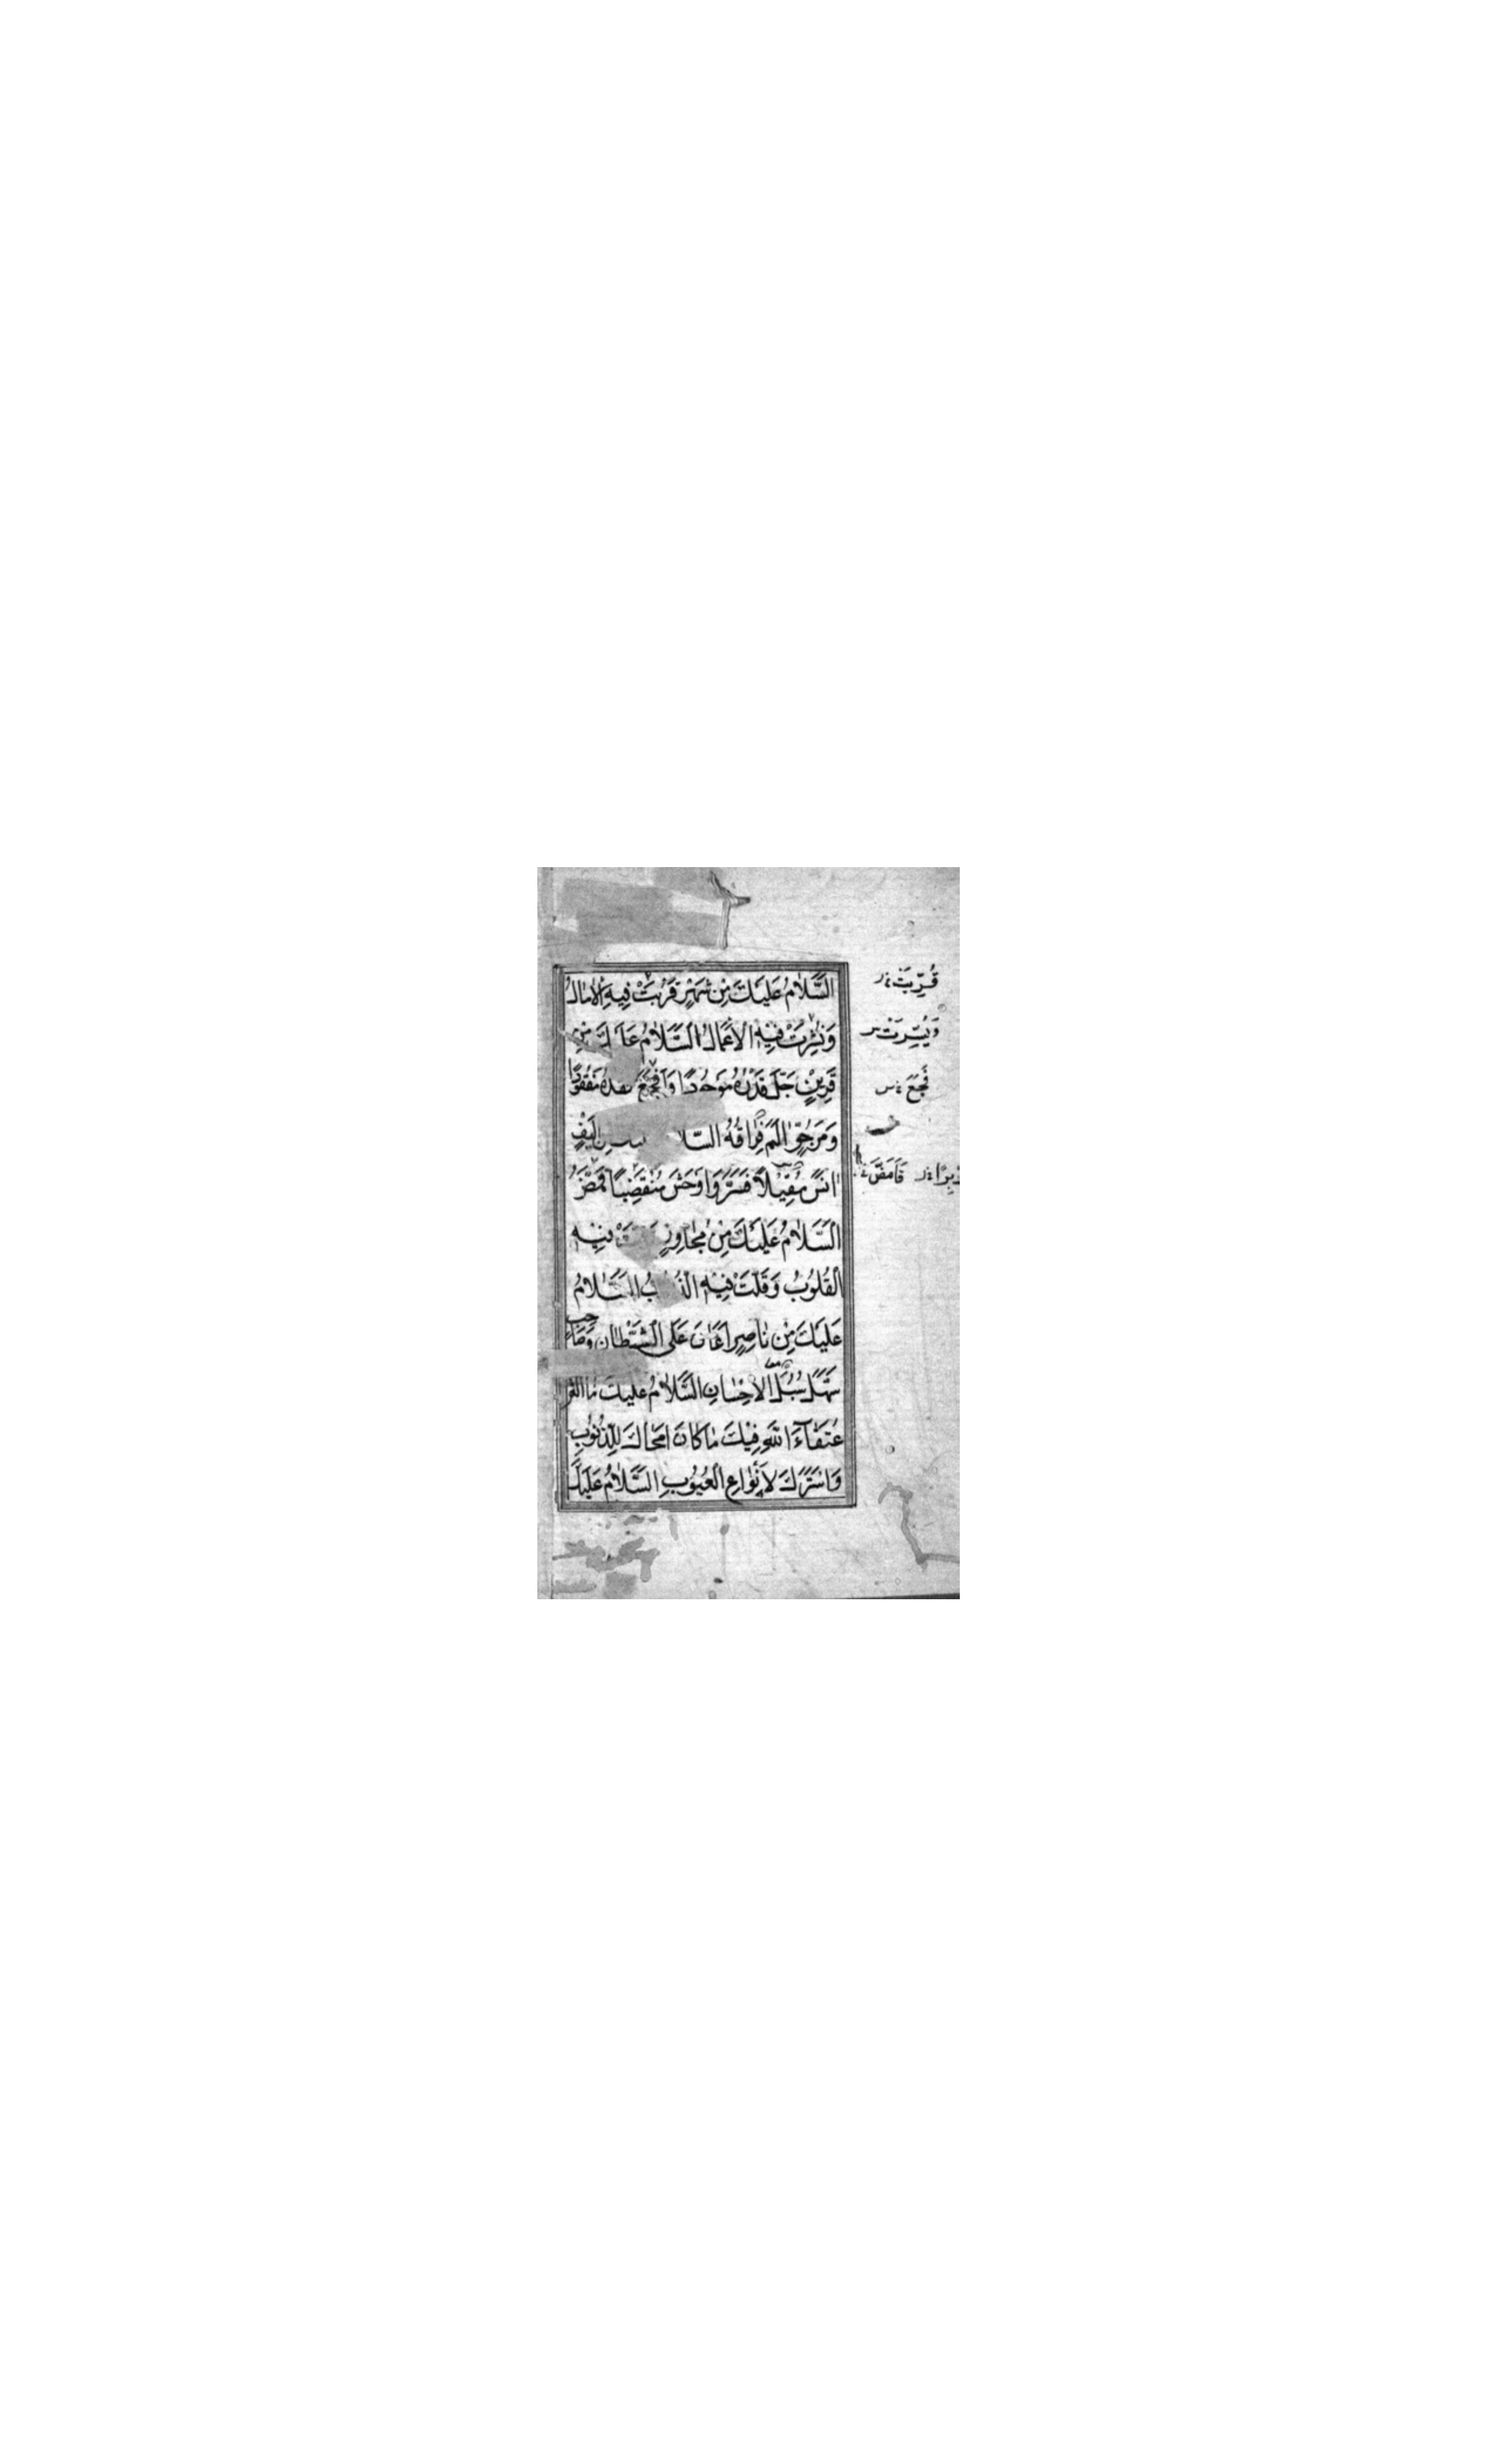 السَّلَامُ عَلَيْكَ مِنْ شَهْرٍ قَرُبَتْ فِيهِ الْآمَالُ
وَنُشِرَتْ فِيهِ الْأَعْمَالُ السَّلَامُ عَلَيْكَ مِنْ
قَرِينٍ جَلَّ قَدْرُهُ مَوْجُودًا وَأَفْجَعَ فَقْدُهُ مَفْقُودًا
وَمَرْجُوٍّ آلَمَ فِرَاقُهُ السَّلَامُ أَلِيفٍ
آنَسَ مُقْبِلًا فَسَرَّ وَأَوْحَشَ مُنْقَضِيًا فَمَضَّ
السَّلَامُ عَلَيْكَ مِنْ مُجَاوِرٍ فِيهِ
الْقُلُوبُ وَقَلَّتْ فِيهِ الذُّنُوبُ السَّلَامُ
عَلَيْكَ مِنْ نَاصِرٍ أَعَانَ عَلَى الشَّيْطَانِ وَصَاحِبٍ
سَهَّلَ سُبُلَ الْإِحْسَانِ السَّلَامُ عَلَيْكَ مَا أَكْثَرَ
عُتَقَاءَ اللَّهِ فِيكَ مَا كَانَ أَمْحَاكَ لِلذُّنُوبِ
وَأَسْتَرَكَ لِأَنْوَاعِ الْعُيُوبِ السَّلَامُ عَلَيْكَ
قُرِّبَتْ
وَيُسِّرَتْ
فَجَعَ
فَأَمَضَّ